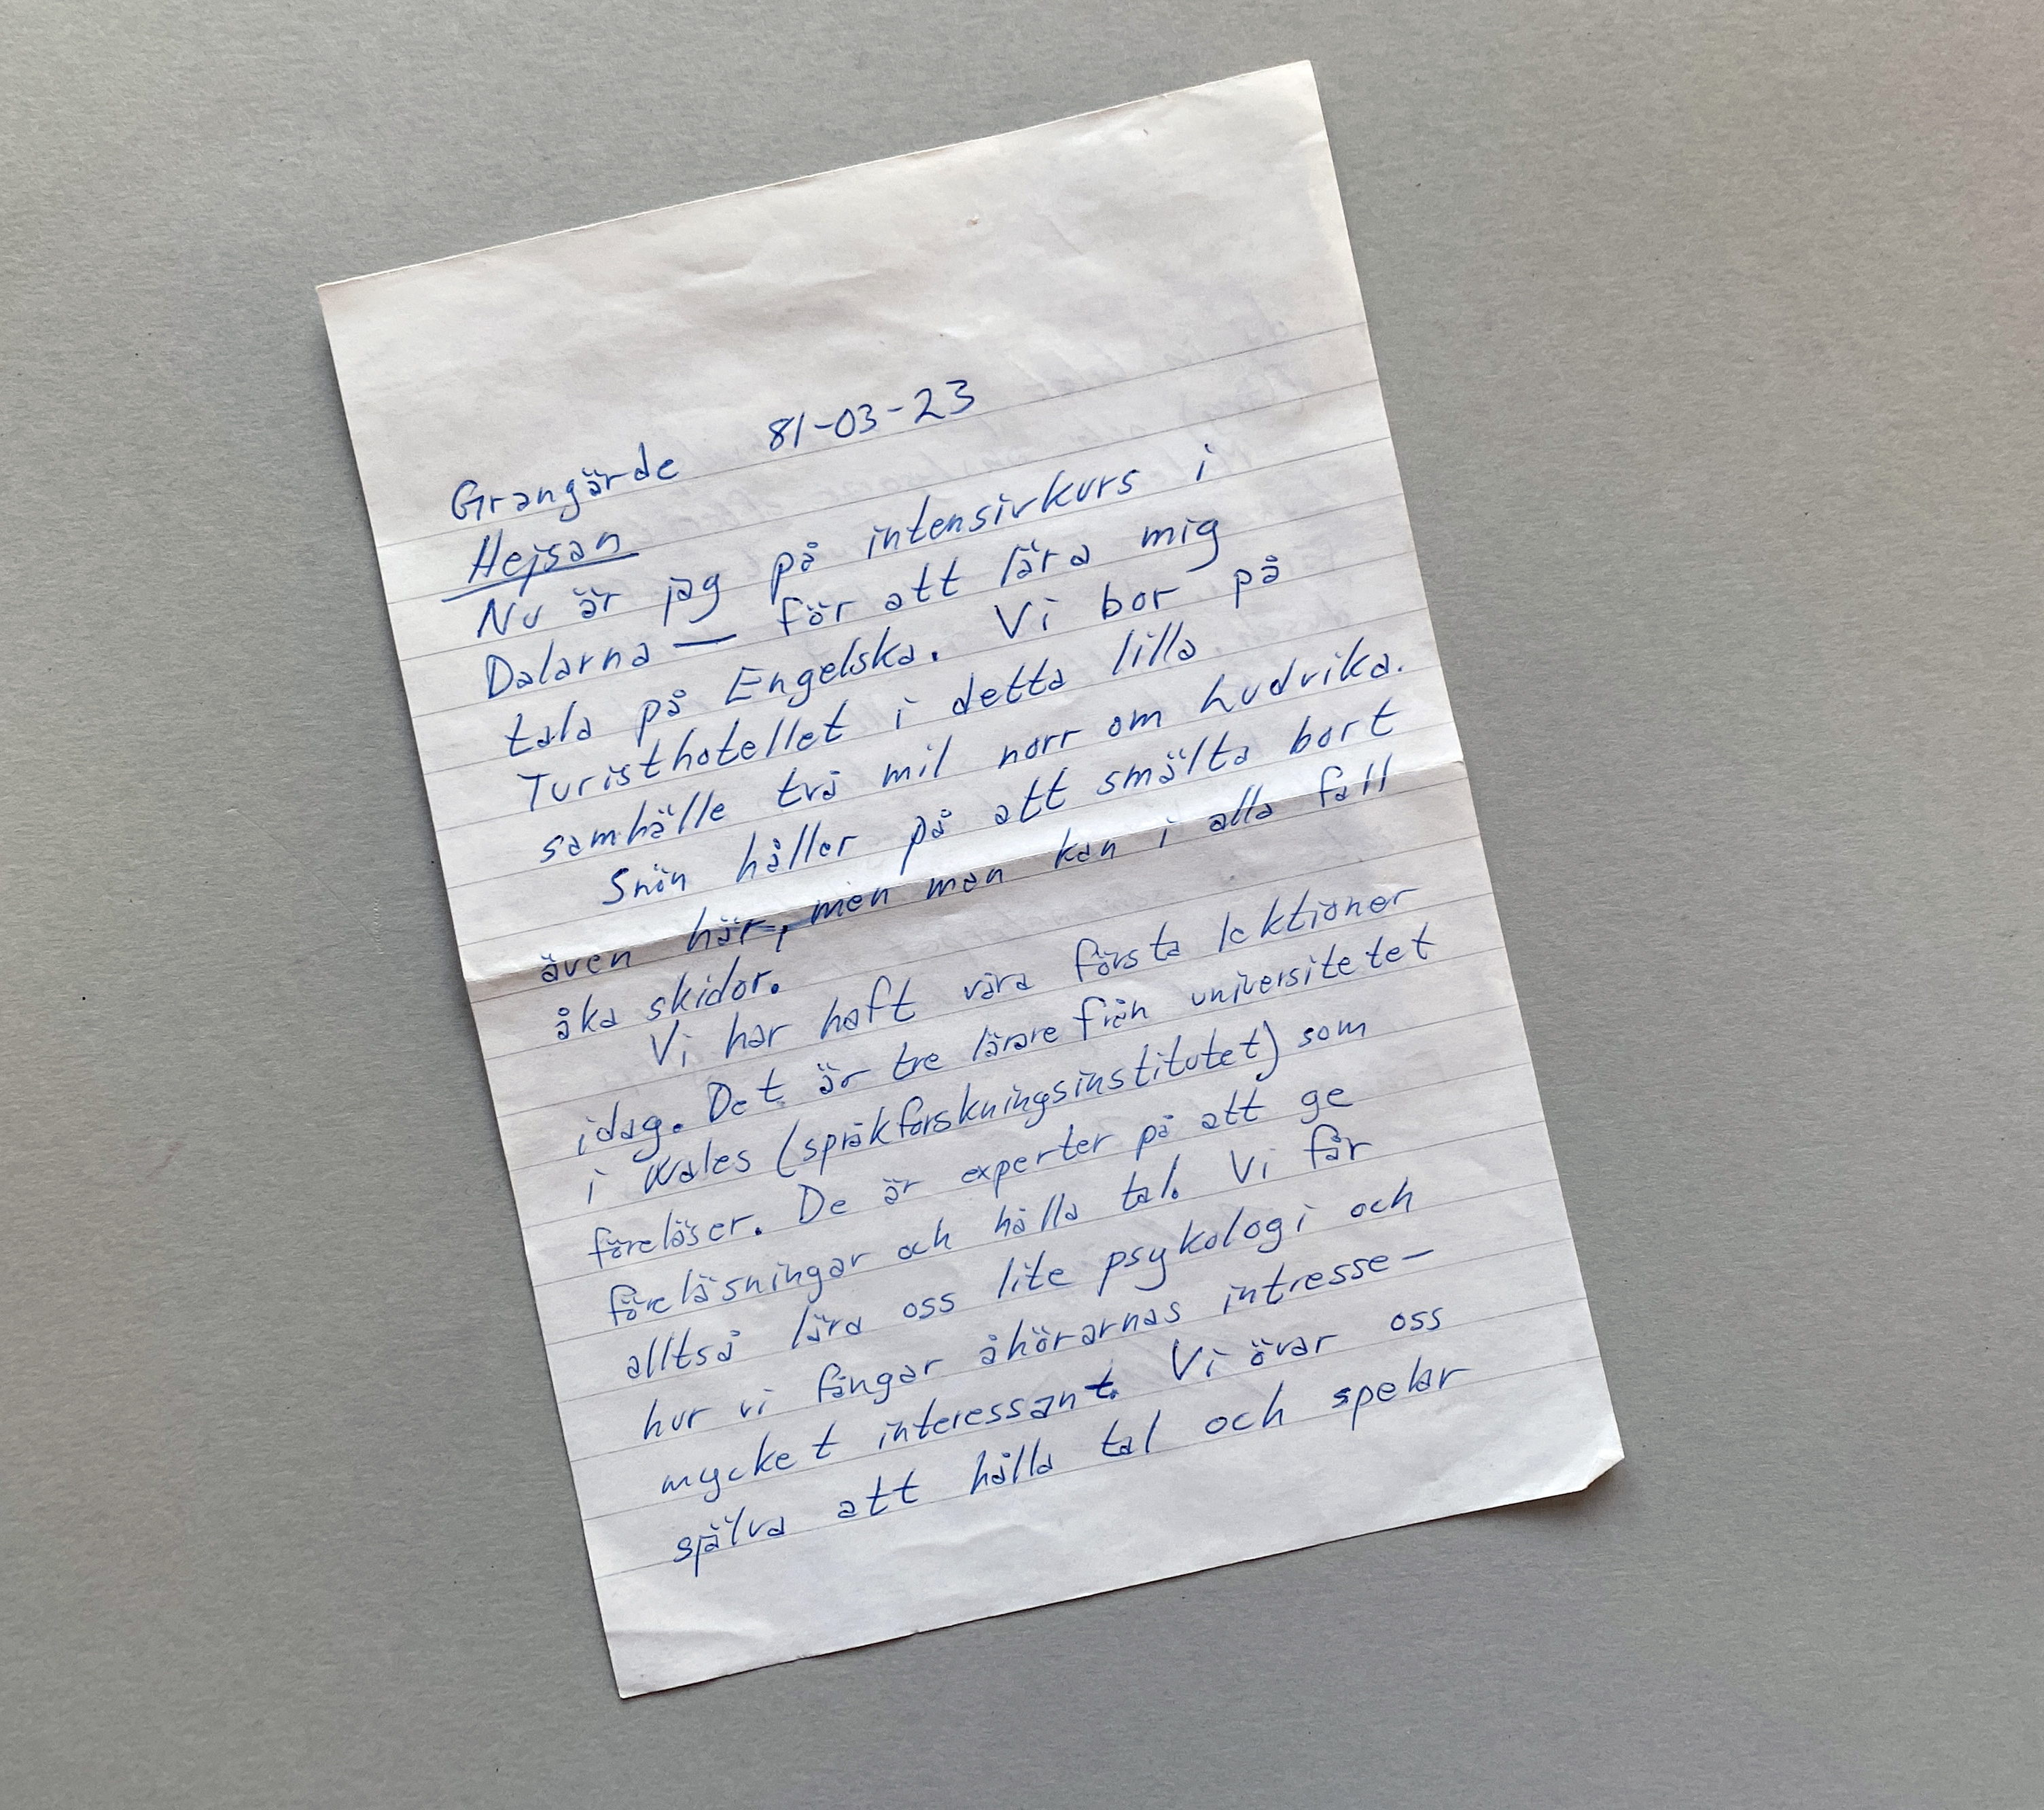 Grangärde 81-03-23
Hejsan
Nu är jag på intensivkurs i
Dalarna — för att lära mig
tala på Engelska. Vi bor på
Turisthotellet i detta lilla
samhälle två mil norr om Ludvika.
Snön håller på att smälta bort
även här, men man kan i alla fall
åka skidor.
Vi har haft våra första lektioner
idag. Det är tre lärare från universitetet
i Wales (språkforskningsinstitutet) som
föreläser. De är experter på att ge
föreläsningar och hålla tal. Vi får
alltså lära oss lite psykologi och
hur vi fångar åhörarnas intresse –
mycket interessant. Vi övar oss
själva att hålla tal och spelar